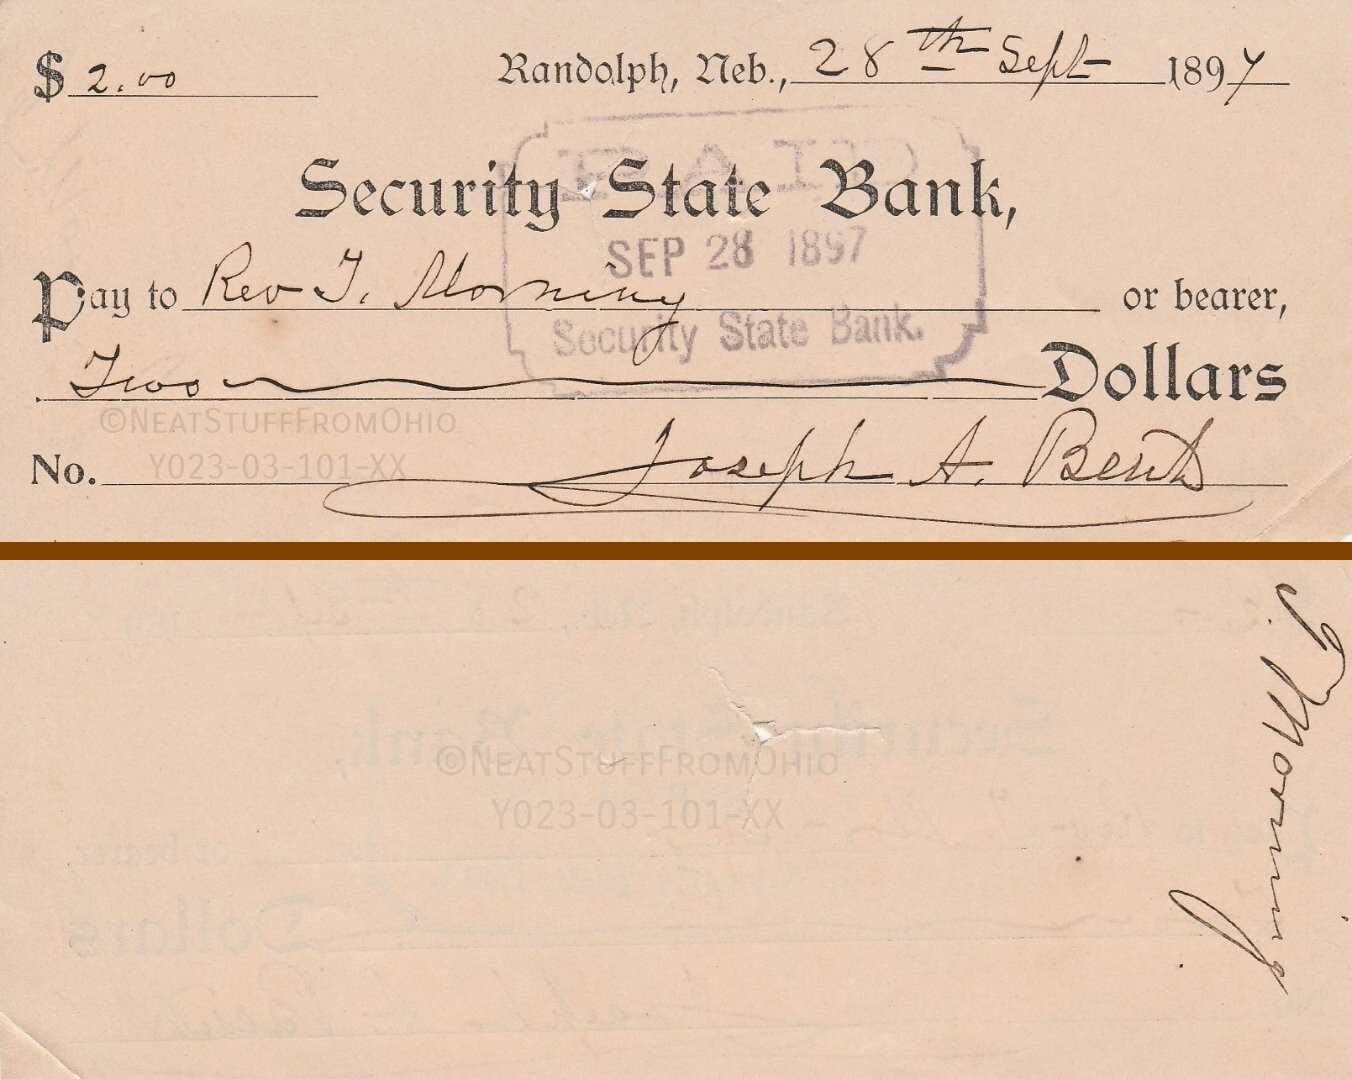 $ 2.00
Randolph, Neb., 28th Sept 1897
PAID
SEP 28 1897
Security State Bank.
Security State Bank,
Pay to Rev T. Morning or bearer,
Two Dollars
©NEATSTUFFFROMOHIO
Y023-03-101-XX
No. Joseph A. Bent
T. Morning
©NEATSTUFFFROMOHIO
Y023-03-101-XX